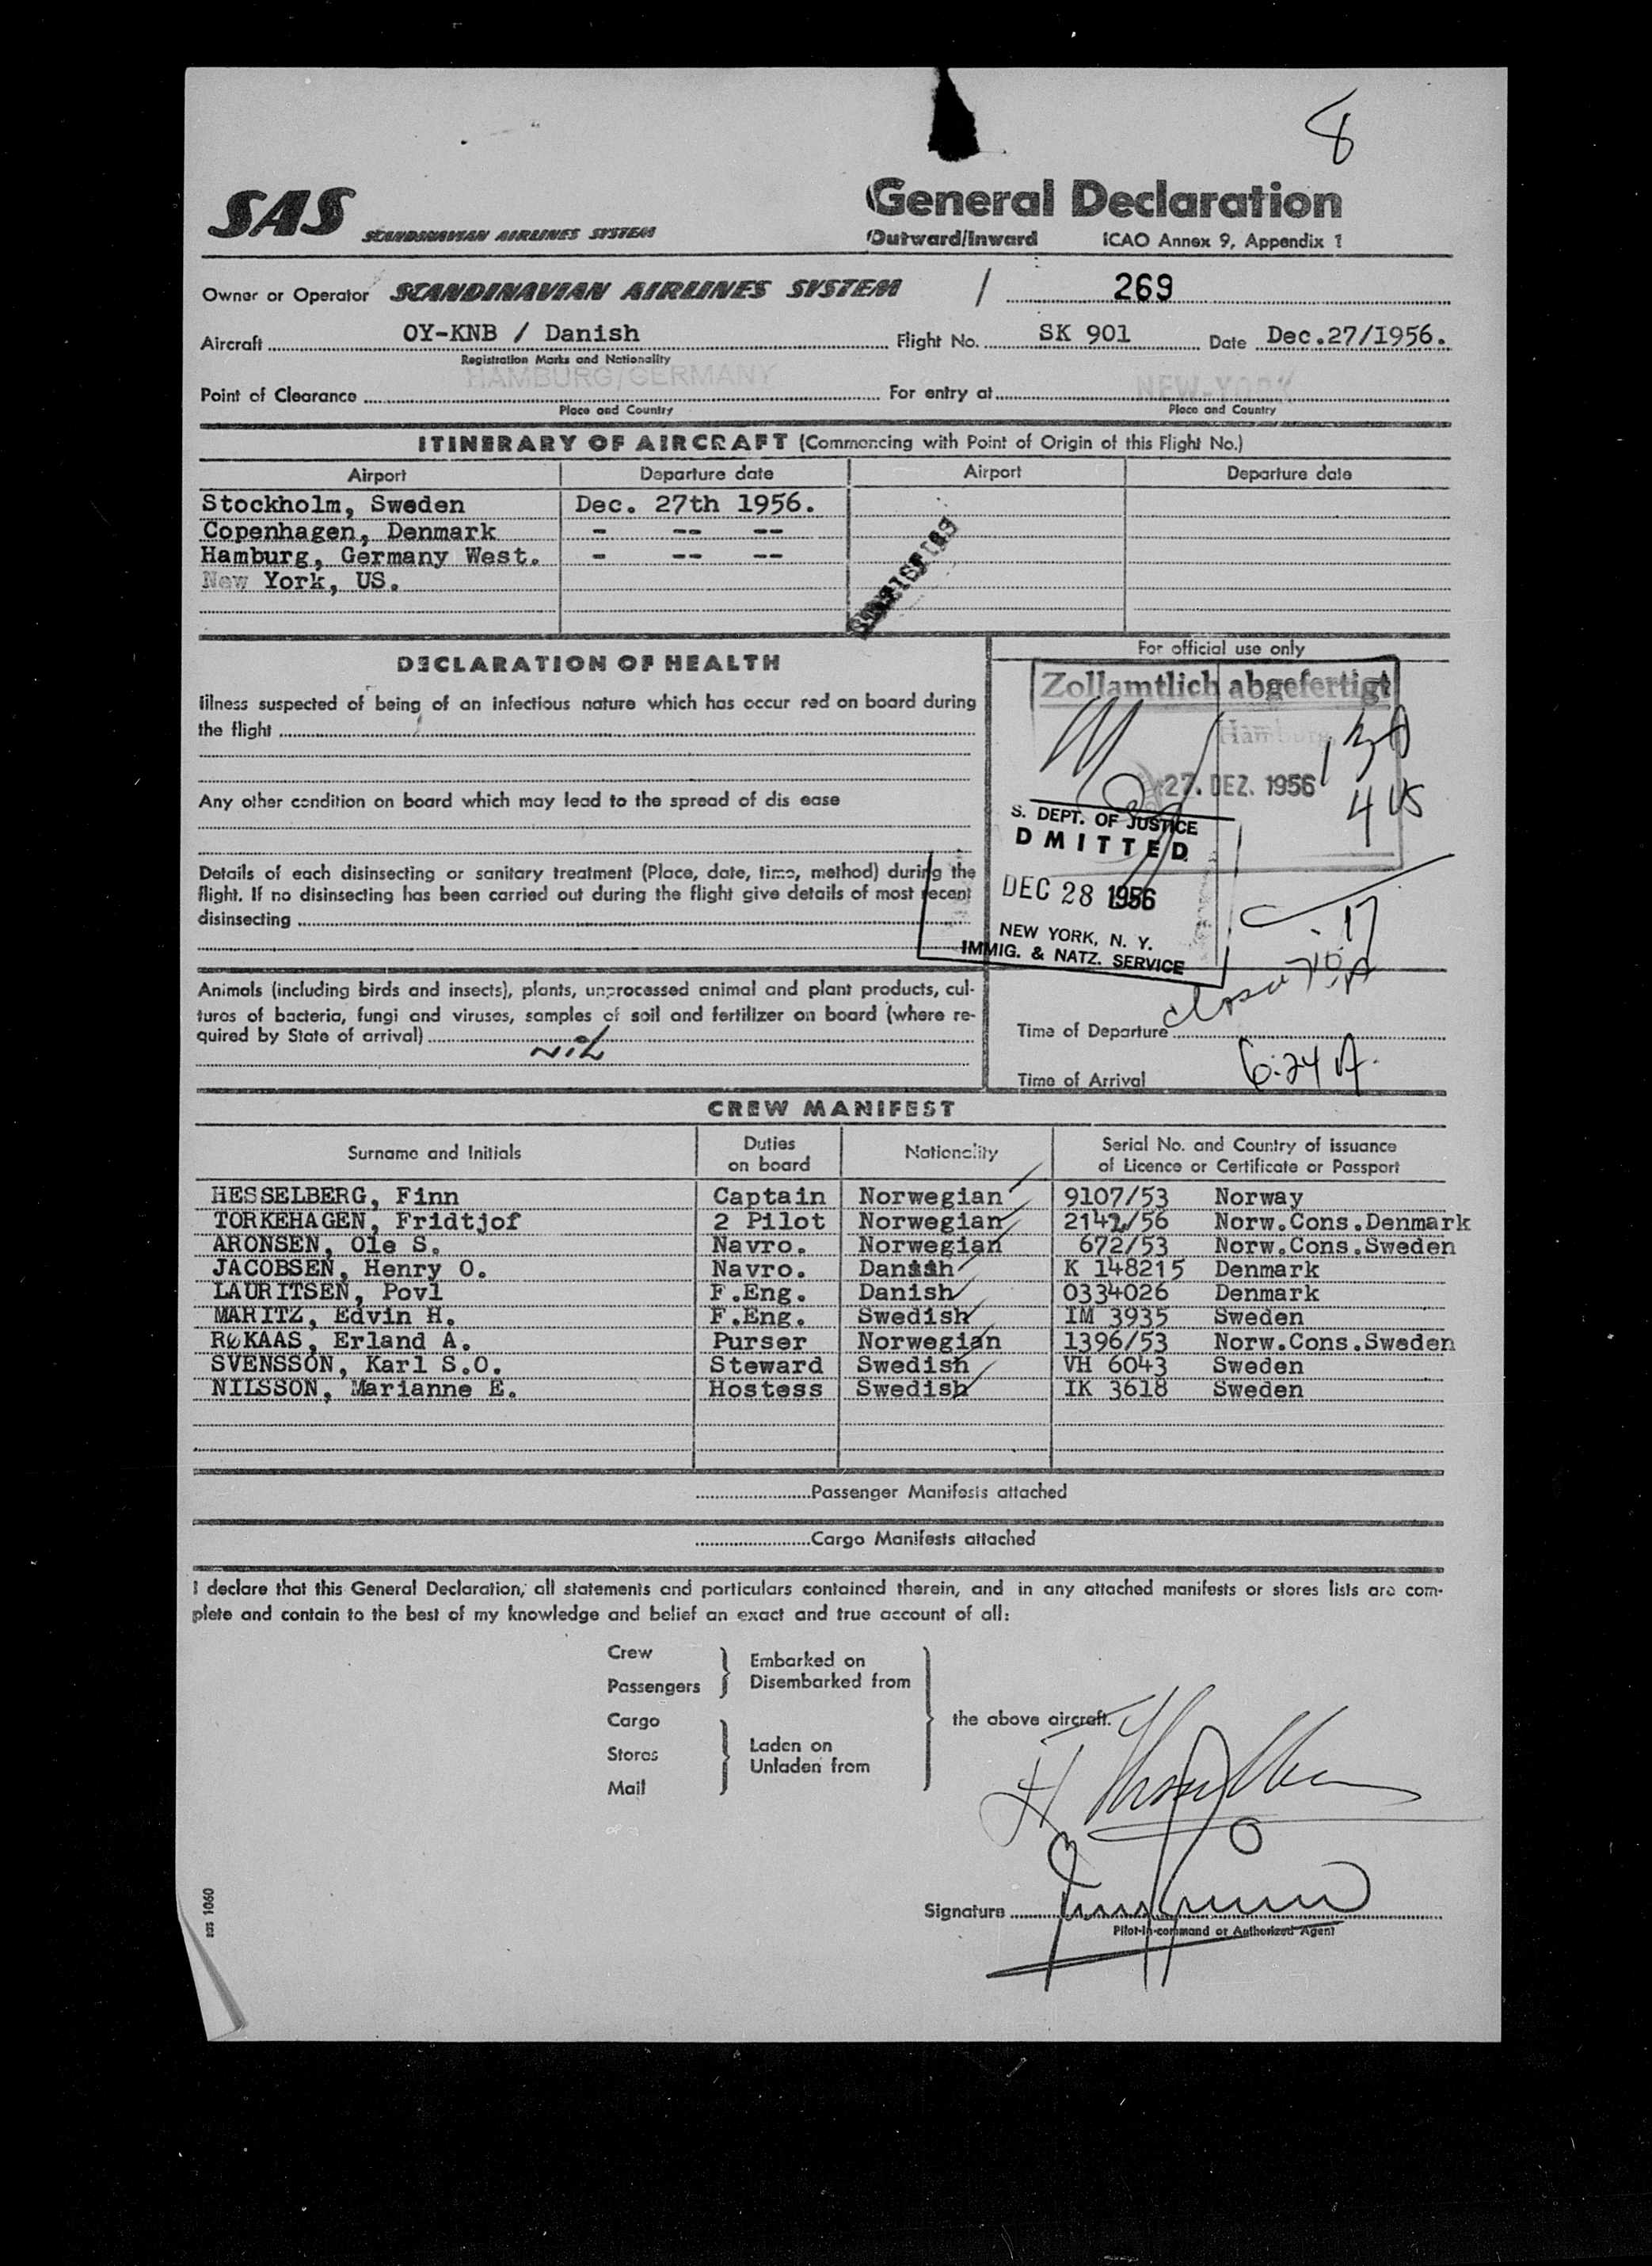 8
SAS SCANDINAVIAN AIRLINES SYSTEM
General Declaration
Outward/Inward ICAO Annex 9, Appendix 1
Owner or Operator SCANDINAVIAN AIRLINES SYSTEM / 269
Aircraft OY-KNB / Danish Flight No. SK 901 Date Dec.27/1956.
Registration Marks and Nationality
Point of Clearance HAMBURG/GERMANY For entry at NEW-YORK
Place and Country Place and Country
ITINERARY OF AIRCRAFT (Commencing with Point of Origin of this Flight No.)
Airport Departure date Airport Departure date
Stockholm, Sweden Dec. 27th 1956.
Copenhagen, Denmark - -- --
Hamburg, Germany West. - -- --
New York, US.
DECLARATION OF HEALTH
Illness suspected of being of an infectious nature which has occur red on board during
the flight
Any other condition on board which may lead to the spread of dis ease
Details of each disinsecting or sanitary treatment (Place, date, time, method) during the
flight. If no disinsecting has been carried out during the flight give details of most recent
disinsecting
Animals (including birds and insects), plants, unprocessed animal and plant products, cul-
tures of bacteria, fungi and viruses, samples of soil and fertilizer on board (where re-
quired by State of arrival) nil
For official use only
Zollamtlich abgefertigt
Hamburg
27. DEZ. 1956
S. DEPT. OF JUSTICE
DMITTED
DEC 28 1956
NEW YORK, N. Y.
IMMIG. & NATZ. SERVICE
Time of Departure
Time of Arrival 6:24 A.
CREW MANIFEST
Surname and Initials Duties on board Nationality Serial No. and Country of issuance of Licence or Certificate or Passport
HESSELBERG, Finn Captain Norwegian 9107/53 Norway
TORKEHAGEN, Fridtjof 2 Pilot Norwegian 2142/56 Norw.Cons.Denmark
ARONSEN, Ole S. Navro. Norwegian 672/53 Norw.Cons.Sweden
JACOBSEN, Henry O. Navro. Danish K 148215 Denmark
LAURITSEN, Povl F.Eng. Danish 0334026 Denmark
MARITZ, Edvin H. F.Eng. Swedish IM 3935 Sweden
RøKAAS, Erland A. Purser Norwegian 1396/53 Norw.Cons.Sweden
SVENSSON, Karl S.O. Steward Swedish VH 6043 Sweden
NILSSON, Marianne E. Hostess Swedish IK 3618 Sweden
Passenger Manifests attached
Cargo Manifests attached
I declare that this General Declaration, all statements and particulars contained therein, and in any attached manifests or stores lists are com-
plete and contain to the best of my knowledge and belief an exact and true account of all:
Crew
Passengers
Embarked on
Disembarked from
Cargo
Stores
Mail
Laden on
Unladen from
the above aircraft.
Signature
Pilot-in-command or Authorized Agent
sas 1060